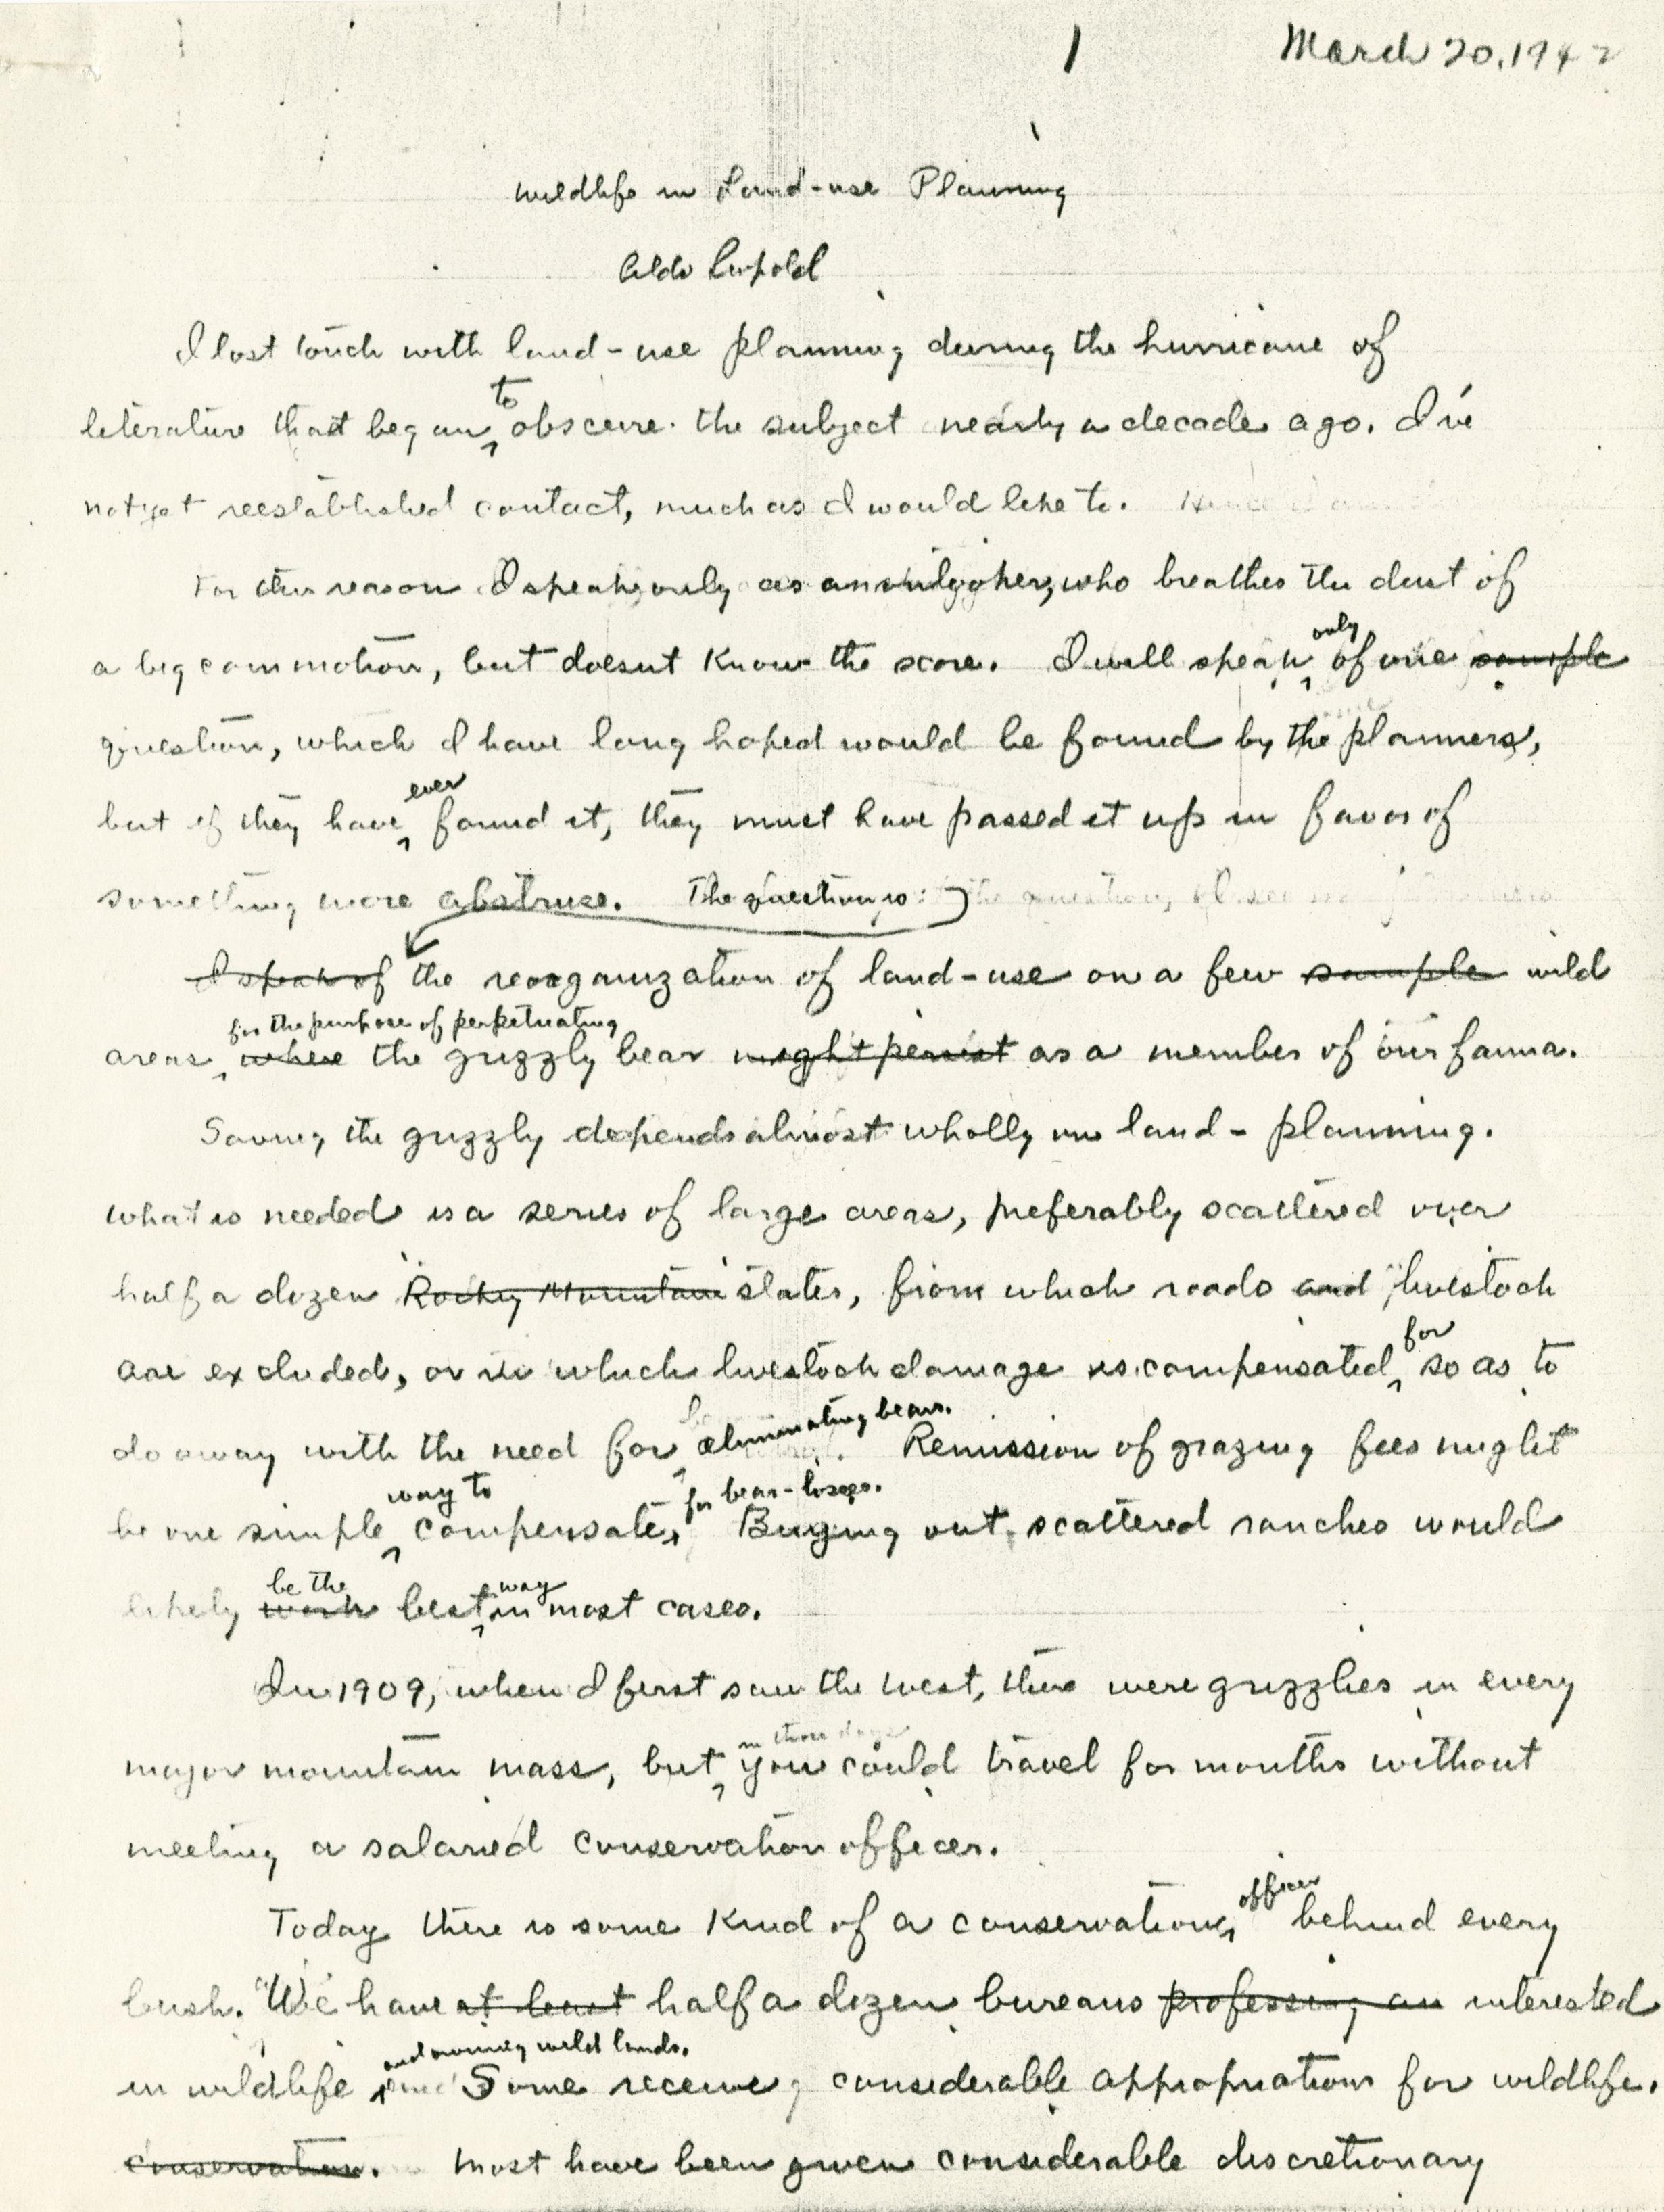 1 March 20, 1942
Wildlife in Land-use Planning
Aldo Leopold
I lost touch with land-use planning during the hurricane of
literature that began to obscure the subject nearly a decade ago. I've
not yet reestablished contact, much as I would like to. Hence I am
For this reason I speak only as an onlooker, who breathes the dust of
a big commotion, but doesnt know the score. I will speak only of one sample
question, which I have long hoped would be found by the planners,
but if they have ever found it, they must have passed it up in favor of
something more abstruse. The question is: the question, I
I speak of the reorganization of land-use on a few sample wild
areas for the purpose of perpetuating where the grizzly bear might persist as a member of our fauna.
Saving the grizzly depends almost wholly on land-planning.
What is needed is a series of large areas, preferably scattered over
half a dozen Rocky Mountain states, from which roads and livestock
are excluded, or in which livestock damage is compensated for so as to
do away with the need for eliminating bears. Remission of grazing fees might
be one simple way to compensate for bear-losses. Buying out scattered ranches would
likely work be the best way in most cases.
In 1909, when I first saw the west, there were grizzlies in every
major mountain mass, but in those days you could travel for months without
meeting a salaried conservation officer.
Today there is some kind of a conservation officer behind every
bush. We have at least half a dozen bureaus professing an interested
in wildlife and owning wild lands. and Some receive considerable appropriations for wildlife.
conservation. Most have been given considerable discretionary